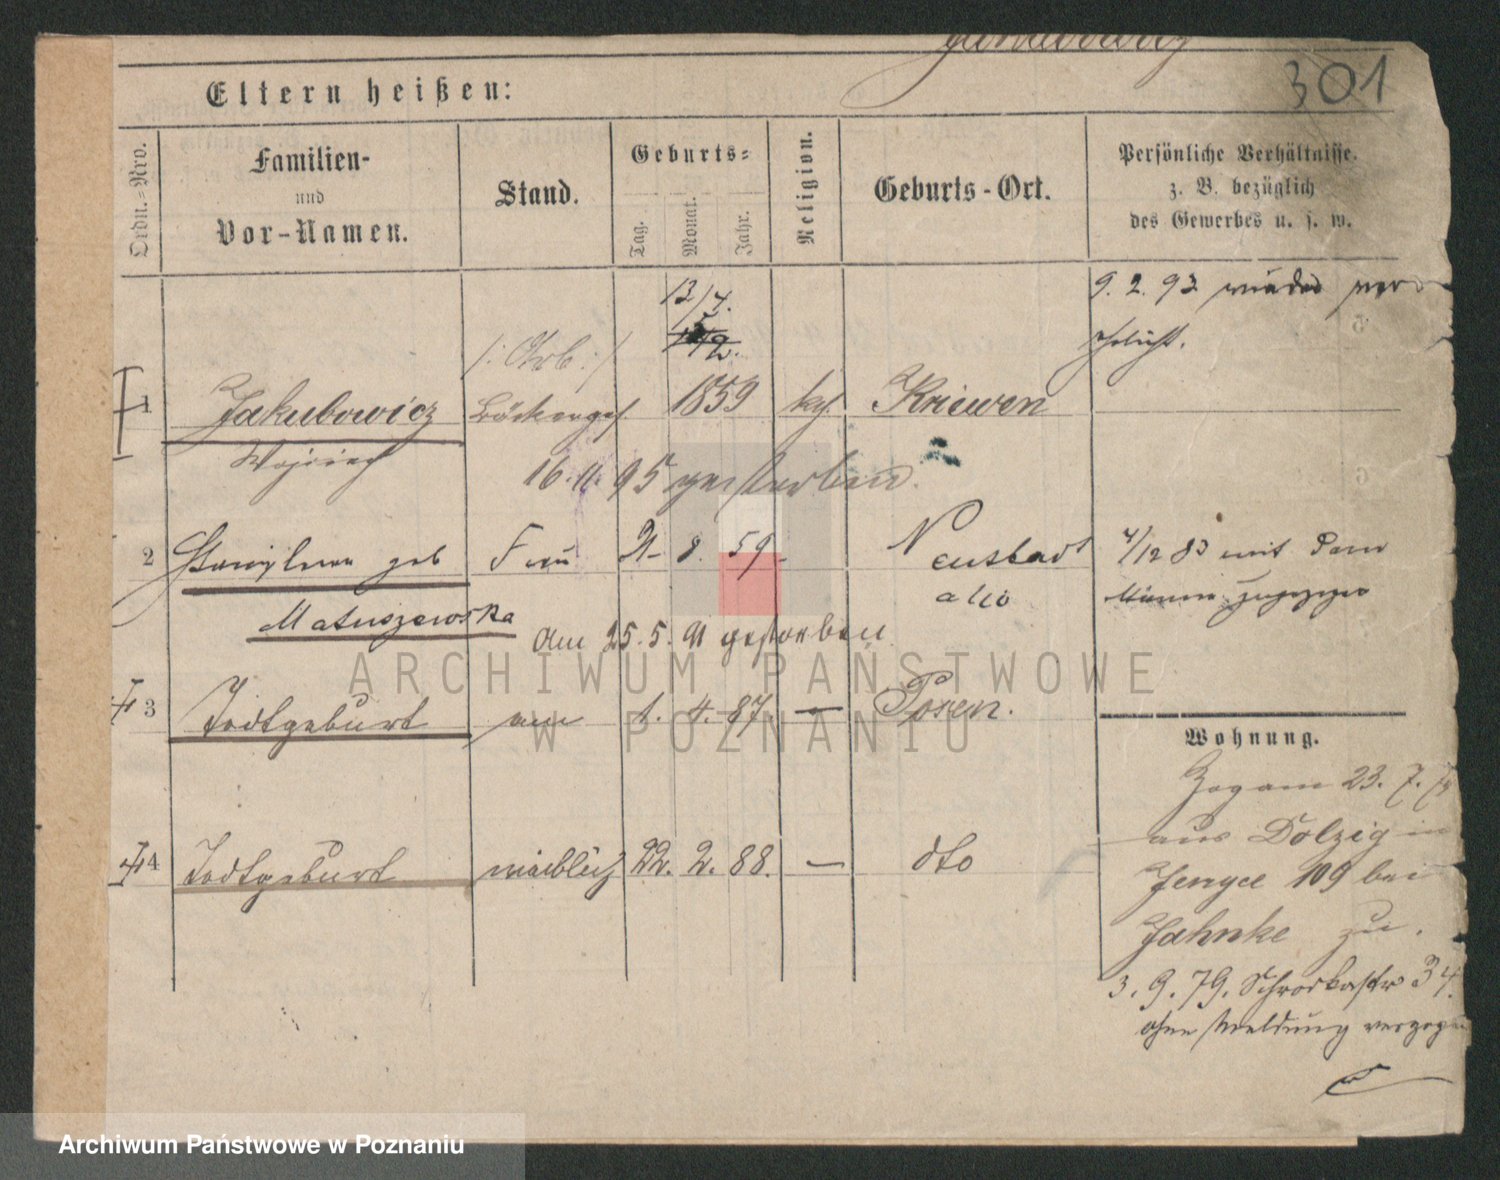 301
Eltern heißen:
Ordn.-Nro.
Familien-
und
Vor-Namen.
Stand.
Geburts-
Tag.
Monat.
Jahr.
Religion.
Geburts-Ort.
Persönliche Verhältnisse.
z. B. bezüglich
des Gewerbes u. s. w.
13/7.
9. 2. 93 wieder ver
ehelicht.
/: Arb :/
1 Jakubowicz Bäckerges. 1859 kath. Kriewen
Wojciech
16. 11. 95 gestorben.
2 geb Frau 21. 8. 59 Neustadt
a/W
4/12 83 mit dem
Manne zugezogen
Matuszewska
am 25. 5. 91 gestorben
3 Todtgeburt am 1. 4. 87. — Posen.
Wohnung.
Zog am 23. 7. 79
aus Dolzig in
4 Todtgeburt weiblich 22. 2. 88. — dto
109 bei
Jahnke zu.
3. 9. 79. Schrodkastr 34.
ohne Meldung verzogen
ARCHIWUM PAŃSTWOWE
W POZNANIU
Archiwum Państwowe w Poznaniu